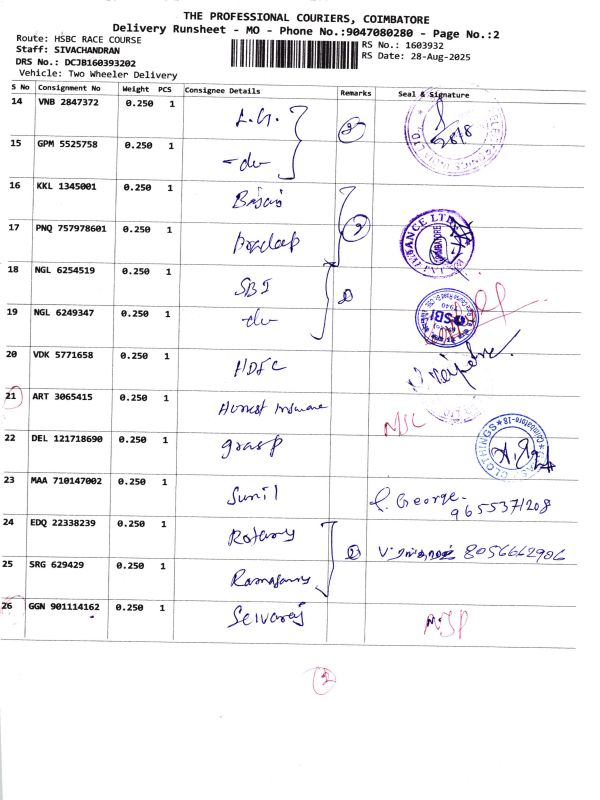 THE PROFESSIONAL COURIERS, COIMBATORE
Delivery Runsheet - MO - Phone No.:9047080280 - Page No.:2
Route: HSBC RACE COURSE
Staff: SIVACHANDRAN
DRS No.: DCJB160393202
Vehicle: Two Wheeler Delivery
RS No.: 1603932
RS Date: 28-Aug-2025
S No Consignment No Weight PCS Consignee Details Remarks Seal & Signature
14 VNB 2847372 0.250 1 L.G.
15 GPM 5525758 0.250 1 -do-
16 KKL 1345001 0.250 1 Bajaj
17 PNQ 757978601 0.250 1 Pradeep
18 NGL 6254519 0.250 1 SBI
19 NGL 6249347 0.250 1 -do-
20 VDK 5771658 0.250 1 HDFC
21 ART 3065415 0.250 1
22 DEL 121718690 0.250 1 grasp
23 MAA 710147002 0.250 1 Sunil George. 9655371208
24 EDQ 22338239 0.250 1 Rotary 2 8056662906
25 SRG 629429 0.250 1 Ramasamy
26 GGN 901114162 0.250 1 Selvaraj
2